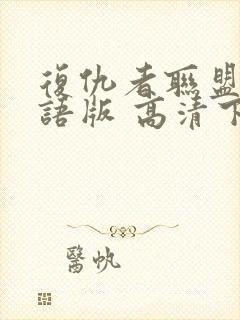 復仇者聯盟
語版 高清下
醫帆